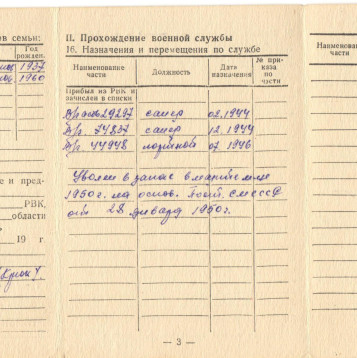 ов семьи:
Год
рожден.
1937
1960
е и пред-
РВК,
области
19 г.
II. Прохождение военной службы
16. Назначения и перемещения по службе
Наименование
части
Должность
Дата
назначения
№ при-
каза
по
части
Прибыл из РВК и
зачислен в списки
29297 сапер 02.1944
74837 сапер 12.1944
44948 07.1946
Уволен в запас в марте м-це
1950 г. на основ. СМ СССР
от 28 января 1950 г.
— 3 —
Наименован
части